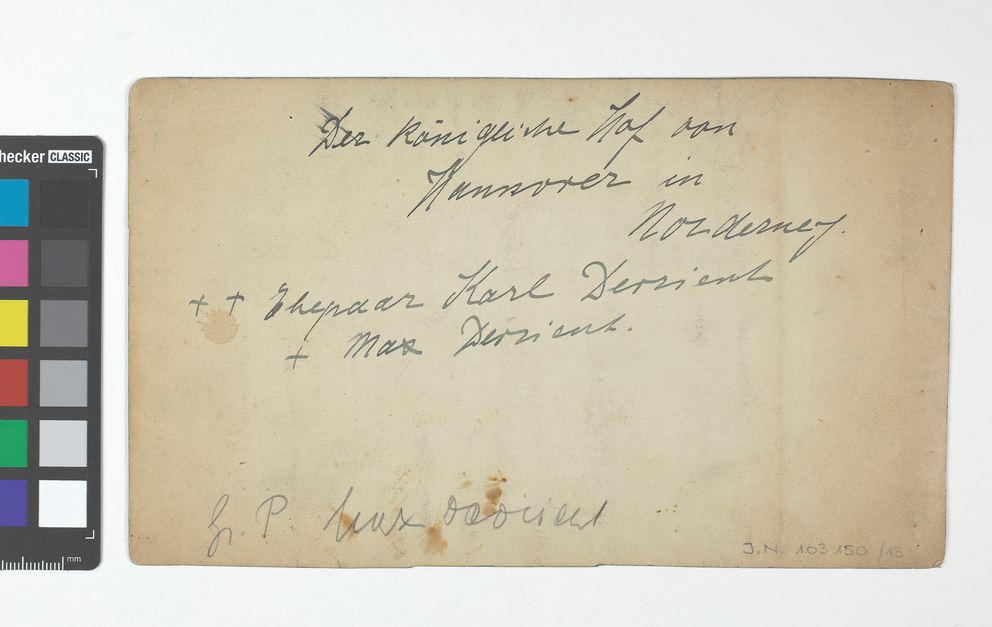 hecker CLASSIC
Der königliche Hof von
Hannover in
Norderney.
+ + Ehepaar Karl Devrient
+ Max Devrient.
Gr. P. Max Devrient
J.N. 103150/13
mm